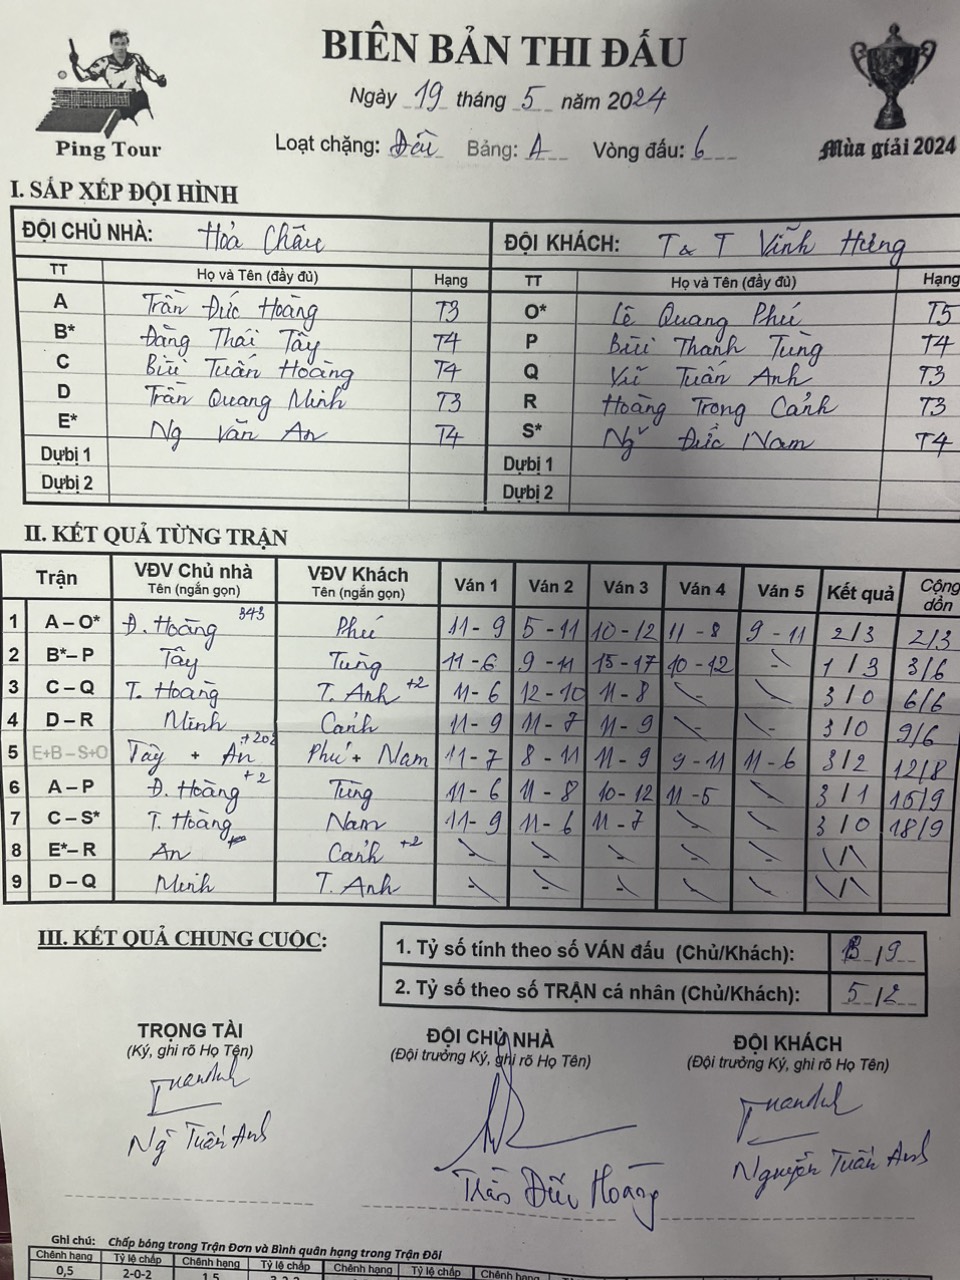 BIÊN BẢN THI ĐẤU
Ngày 19 tháng 5 năm 2024
Ping Tour
Loạt chặng: Đấu Bảng: A Vòng đấu: 6
Mùa giải 2024
I. SẮP XẾP ĐỘI HÌNH
ĐỘI CHỦ NHÀ: Hoả Châu ĐỘI KHÁCH: T & T Vĩnh Hưng
TT Họ và Tên (đầy đủ) Hạng TT Họ và Tên (đầy đủ) Hạng
A Trần Đức Hoàng T3 O* Lê Quang Phú T5
B* Đặng Thái Tây T4 P Bùi Thanh Tùng T4
C Bùi Tuấn Hoàng T4 Q Vũ Tuấn Anh T3
D Trần Quang Minh T3 R Hoàng Trọng Cảnh T3
E* Ng Văn An T4 S* Ng Đức Nam T4
Dự bị 1 Dự bị 1
Dự bị 2 Dự bị 2
II. KẾT QUẢ TỪNG TRẬN
Trận VĐV Chủ nhà Tên (ngắn gọn) VĐV Khách Tên (ngắn gọn) Ván 1 Ván 2 Ván 3 Ván 4 Ván 5 Kết quả Cộng dồn
1 A – O* Đ. Hoàng 343 Phú 11 - 9 5 - 11 10 - 12 11 - 8 9 - 11 2/3 2/3
2 B* – P Tây Tùng 11 - 6 9 - 11 15 - 17 10 - 12 - 1/3 3/6
3 C – Q T. Hoàng T. Anh +2 11 - 6 12 - 10 11 - 8 - - 3/0 6/6
4 D – R Minh Cảnh 11 - 9 11 - 7 11 - 9 - - 3/0 9/6
5 E+B – S+O Tây + An +202 Phú + Nam 11 - 7 8 - 11 11 - 9 9 - 11 11 - 6 3/2 12/8
6 A – P Đ. Hoàng +2 Tùng 11 - 6 11 - 8 10 - 12 11 - 5 - 3/1 15/9
7 C – S* T. Hoàng Nam 11 - 9 11 - 6 11 - 7 - - 3/0 18/9
8 E* – R An Cảnh +2 - - - - - /
9 D – Q Minh T. Anh - - - - - /
III. KẾT QUẢ CHUNG CUỘC:
1. Tỷ số tính theo số VÁN đấu (Chủ/Khách): /9
2. Tỷ số theo số TRẬN cá nhân (Chủ/Khách): 5/2
TRỌNG TÀI ĐỘI CHỦ NHÀ ĐỘI KHÁCH
(Ký, ghi rõ Họ Tên) (Đội trưởng Ký, ghi rõ Họ Tên) (Đội trưởng Ký, ghi rõ Họ Tên)
Ng Tuấn Anh Trần Đức Hoàng Nguyễn Tuấn Anh
Ghi chú: Chấp bóng trong Trận Đơn và Bình quân hạng trong Trận Đôi
Chênh hạng Tỷ lệ chấp Chênh hạng Tỷ lệ chấp Chênh hạng Tỷ lệ chấp Chênh hạng
0,5 2-0-2 1,5